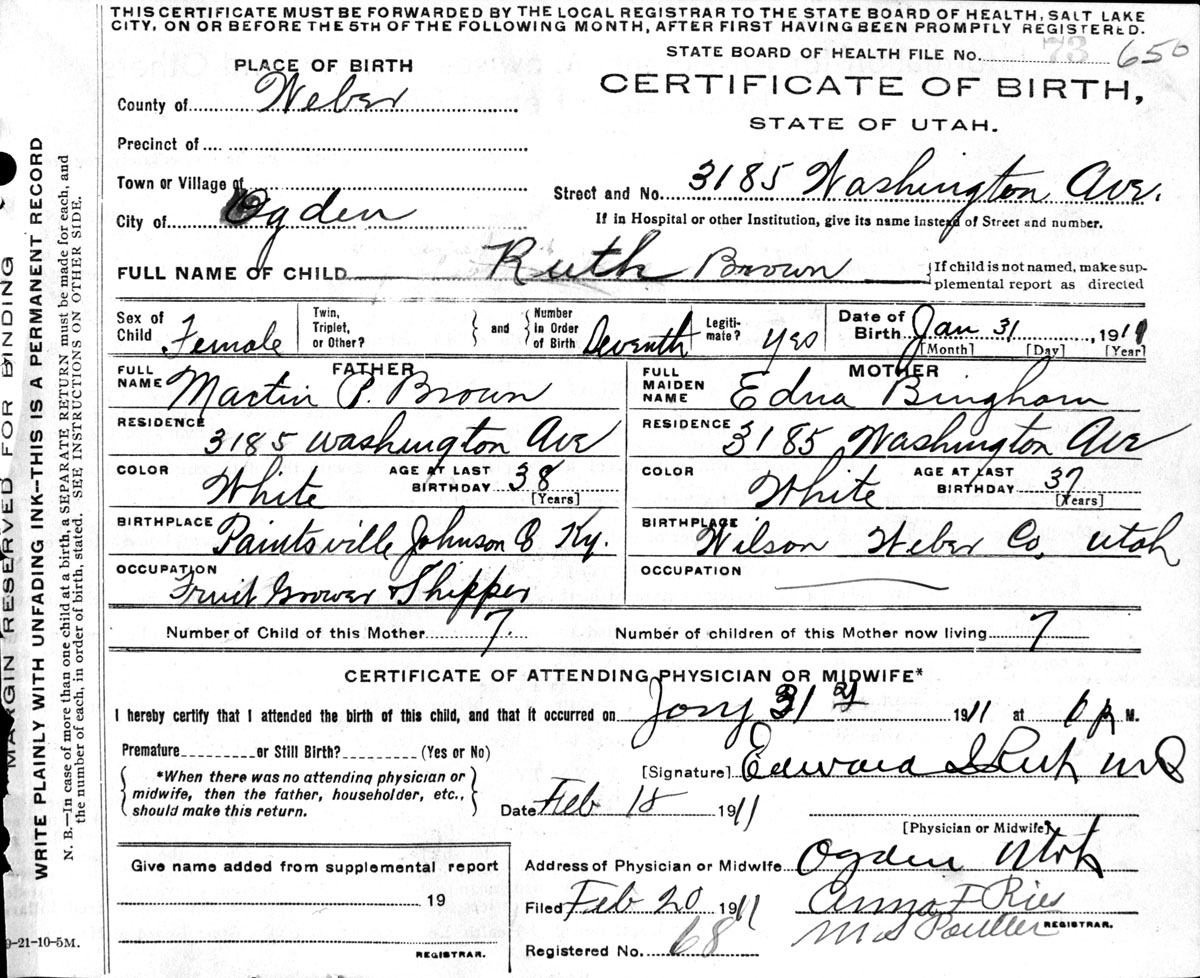 THIS CERTIFICATE MUST BE FORWARDED BY THE LOCAL REGISTRAR TO THE STATE BOARD OF HEALTH, SALT LAKE
CITY, ON OR BEFORE THE 5TH OF THE FOLLOWING MONTH, AFTER FIRST HAVING BEEN PROMPTLY REGISTERED.
STATE BOARD OF HEALTH FILE No. 73 650
PLACE OF BIRTH
CERTIFICATE OF BIRTH,
STATE OF UTAH.
County of Weber
Precinct of
Town or Village of
Street and No. 3185 Washington Ave.
City of Ogden
If in Hospital or other Institution, give its name instead of Street and number.
FULL NAME OF CHILD Ruth Brown
{If child is not named, make sup-
plemental report as directed
Sex of Child Female
Twin, Triplet, or Other?
and
Number in Order of Birth Seventh
Legiti-mate? yes
Date of Birth Jan 31, 1911
[Month] [Day] [Year]
FATHER
FULL NAME Martin P. Brown
RESIDENCE 3185 Washington Ave
COLOR White
AGE AT LAST BIRTHDAY 38
[Years]
BIRTHPLACE Paintsville Johnson Co Ky.
OCCUPATION Fruit Grower & Shipper
MOTHER
FULL MAIDEN NAME Edna Bingham
RESIDENCE 3185 Washington Ave
COLOR White
AGE AT LAST BIRTHDAY 37
[Years]
BIRTHPLACE Wilson Weber Co, Utah
OCCUPATION
Number of Child of this Mother 7
Number of children of this Mother now living 7
CERTIFICATE OF ATTENDING PHYSICIAN OR MIDWIFE*
I hereby certify that I attended the birth of this child, and that it occurred on Jany 31 1911 at 6 P M.
Premature or Still Birth? (Yes or No)
{*When there was no attending physician or
midwife, then the father, householder, etc.,
should make this return.}
[Signature] Edward I MD
Date Feb 18 1911
[Physician or Midwife]
Give name added from supplemental report
19
REGISTRAR.
Address of Physician or Midwife Ogden Utah
Filed Feb 20 1911
Anna F Ries
M S
REGISTRAR.
Registered No. 68
9-21-10-5M.
MARGIN RESERVED FOR BINDING
WRITE PLAINLY WITH UNFADING INK--THIS IS A PERMANENT RECORD
N. B.—In case of more than one child at a birth, a SEPARATE RETURN must be made for each, and
the number of each, in order of birth, stated. SEE INSTRUCTIONS ON OTHER SIDE.